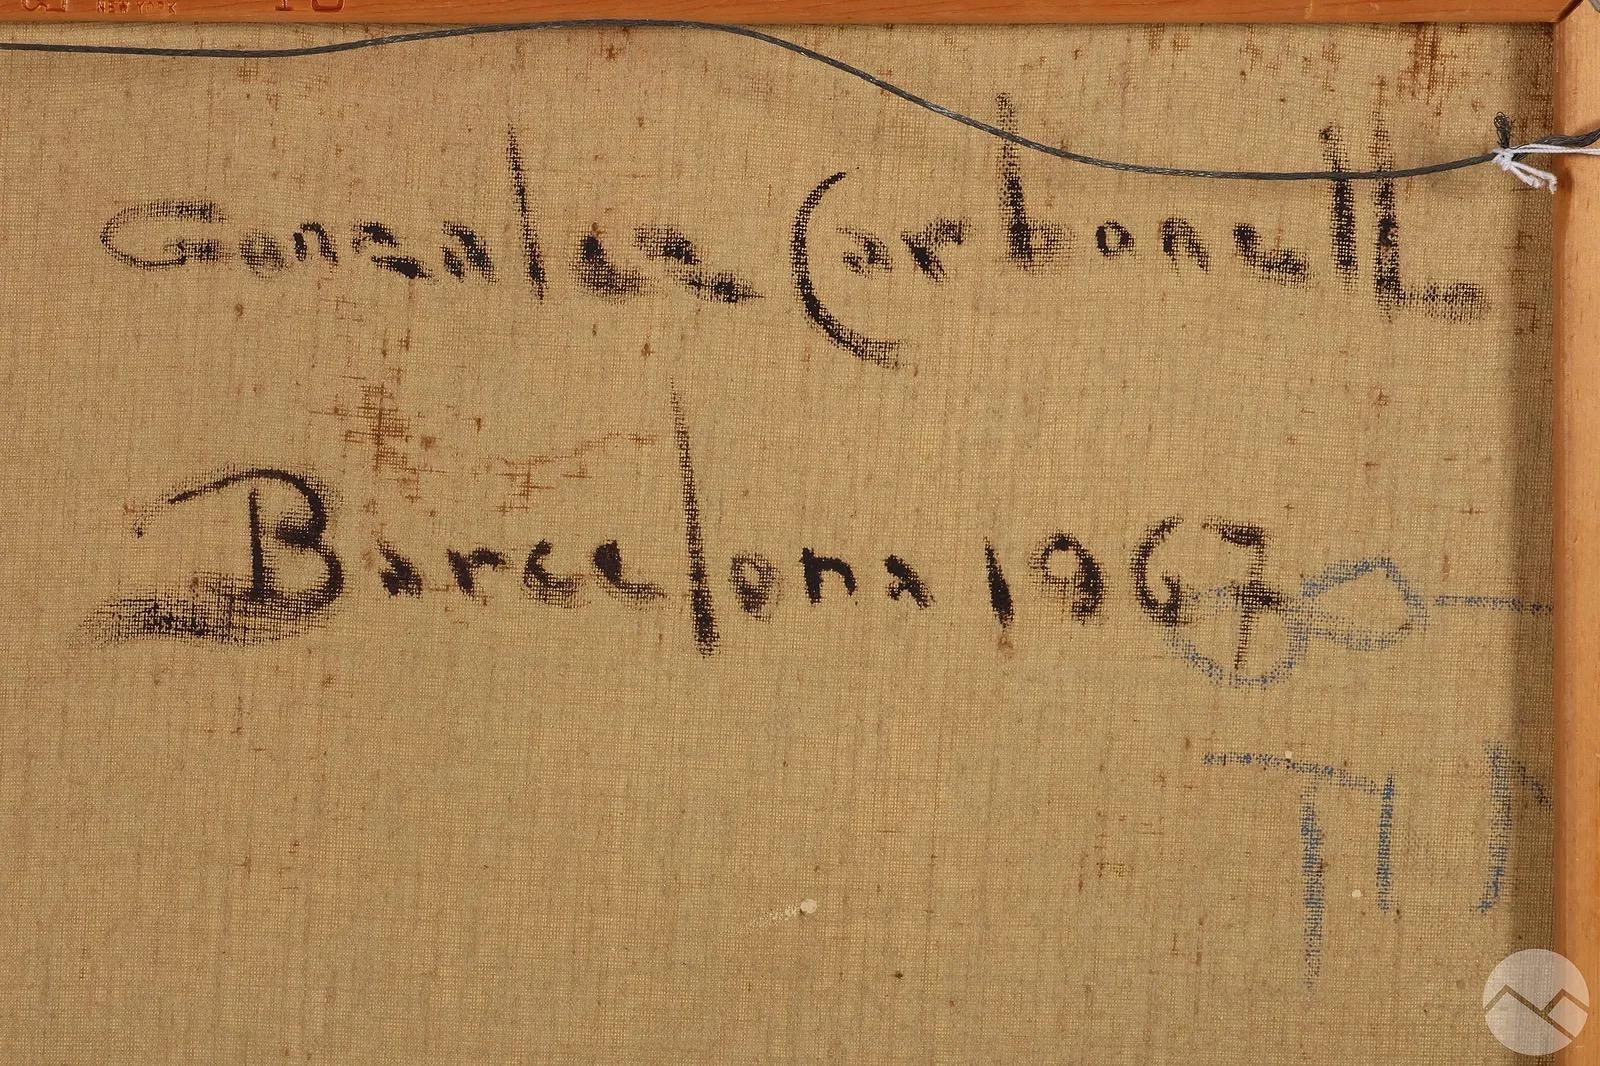 NEW YORK
Gonzalez Carbonell
Barcelona 1967